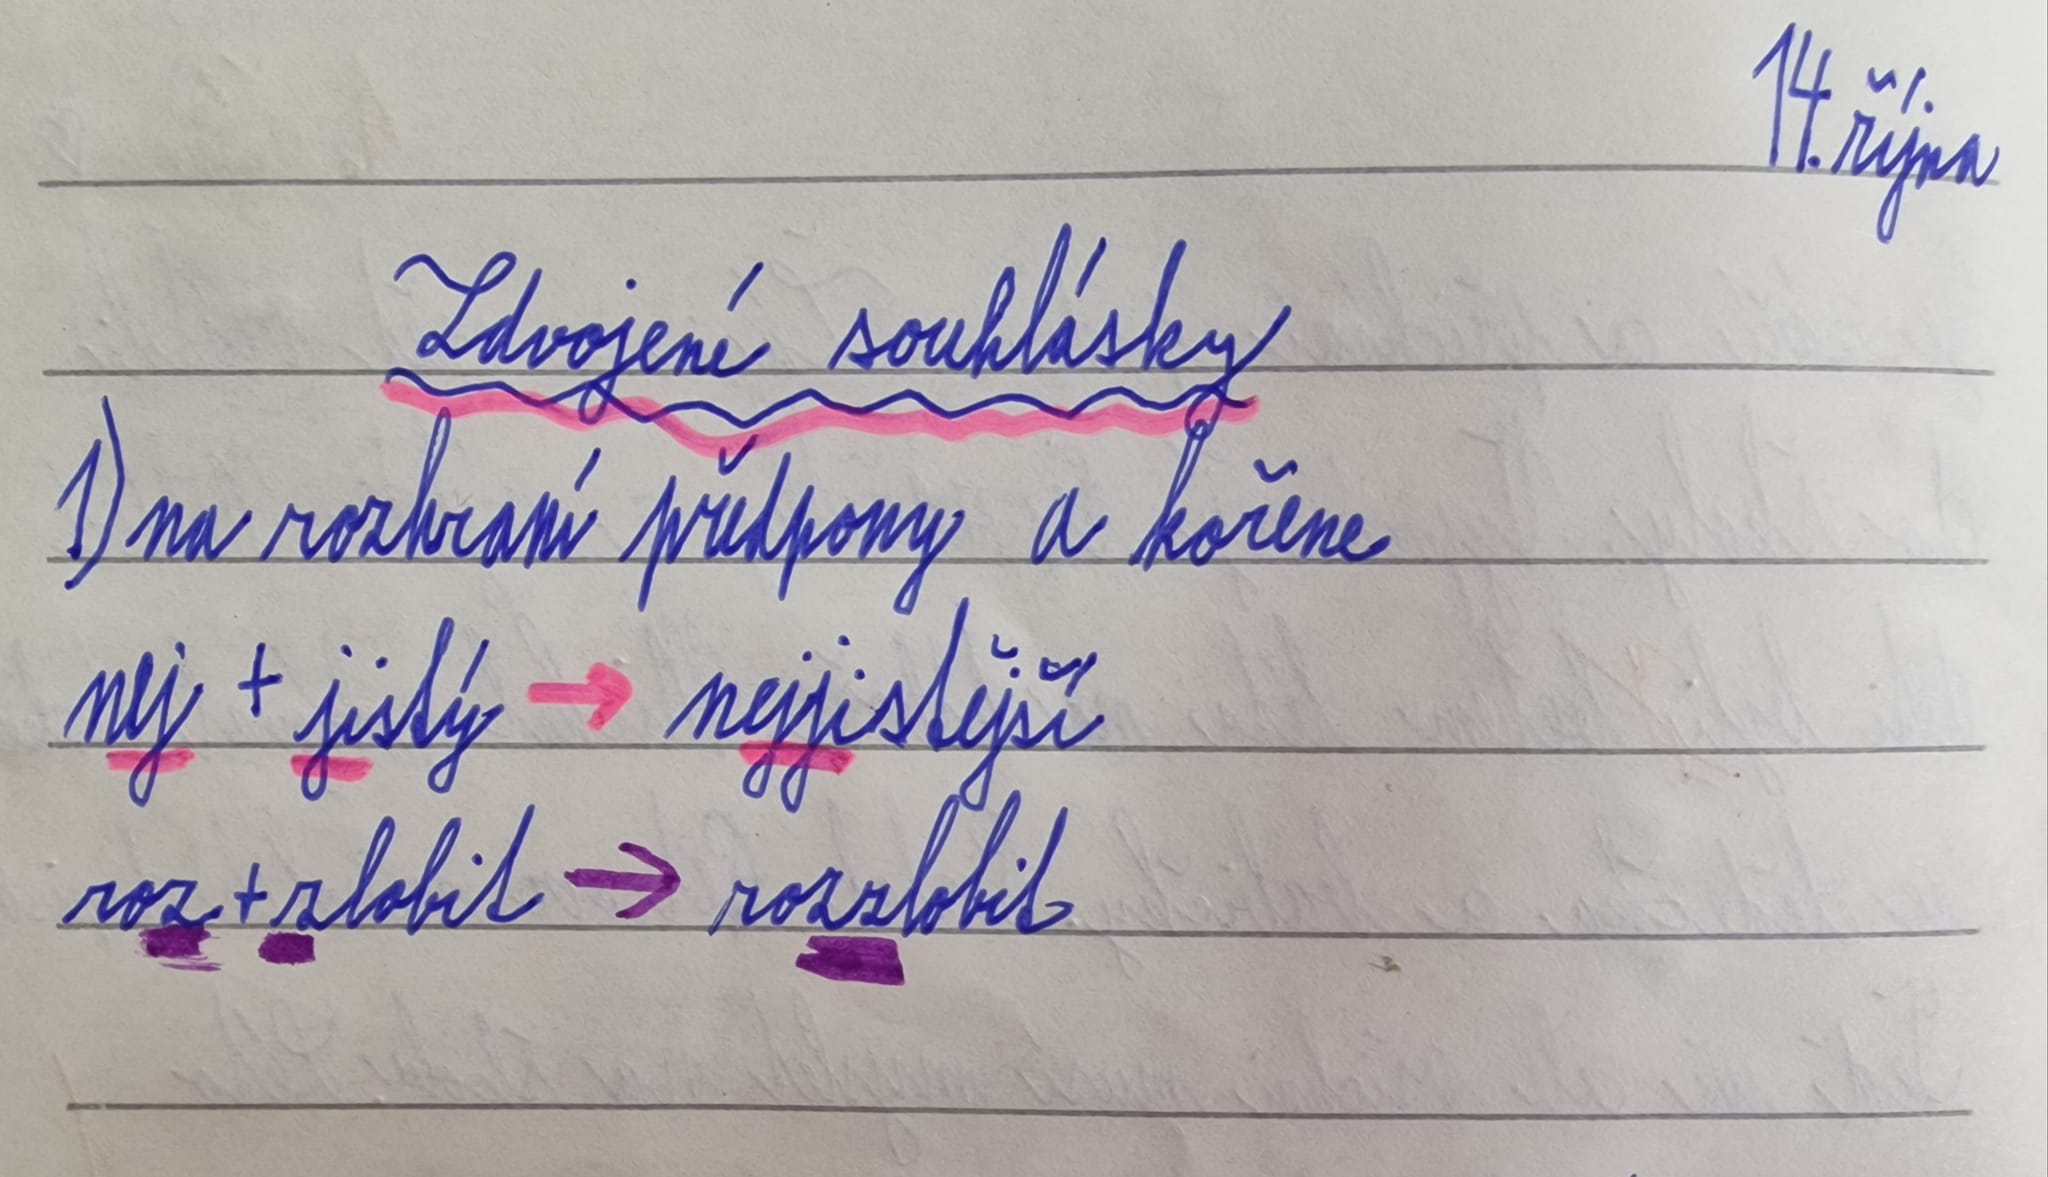 14. října
Zdvojené souhlásky
1) na rozhraní předpony a kořene
nej + jistý → nejjistější
roz + zlobit → rozzlobit